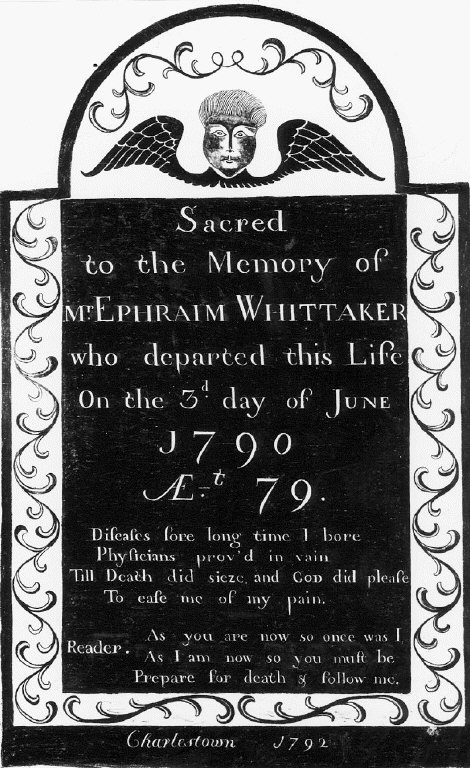 Sacred
to the Memory of
Mr. EPHRAIM WHITTAKER
who departed this Life
On the 3d day of JUNE
1790
Æ-t 79.
Diſeaſes ſore long time I bore
Phyſicians prov'd in vain
Till Death did sieze, and GOD did pleaſe
To eaſe me of my pain.
Reader.
As you are now so once was I
As I am now so you muſt be
Prepare for death & follow me.
Charlestown 1792